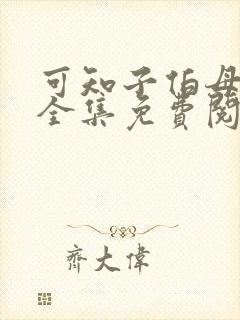 可知子伯母
全集免費閱
齊大偉